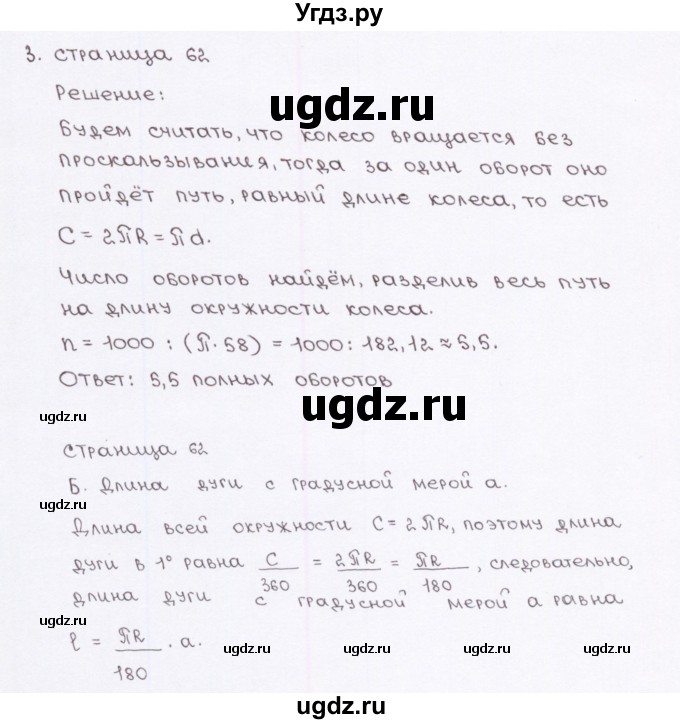 Угдз.ру
3. страница 62
Решение:
ugdz.ru
Будем считать, что колесо вращается без
проскальзывания, тогда за один оборот оно
пройдёт путь, равный длине колеса, то есть
C = 2πR = πd.
Число оборотов найдём, разделив весь путь
на длину окружности колеса.
n = 1000 : (π · 58) = 1000 : 182,12 ≈ 5,5.
Ответ: 5,5 полных оборотов
ugdz.ru
ugdz.ru
страница 62
Б. Длина дуги с градусной мерой a.
ugdz.ru
Длина всей окружности C = 2πR, поэтому длина
дуги в 1° равна C/360 = 2πR/360 = πR/180, следовательно,
длина дуги с градусной мерой a равна
ugdz.ru
l = πR/180 · a.
ugdz.ru ugdz.ru ugdz.ru ugdz.ru
ugdz.ru